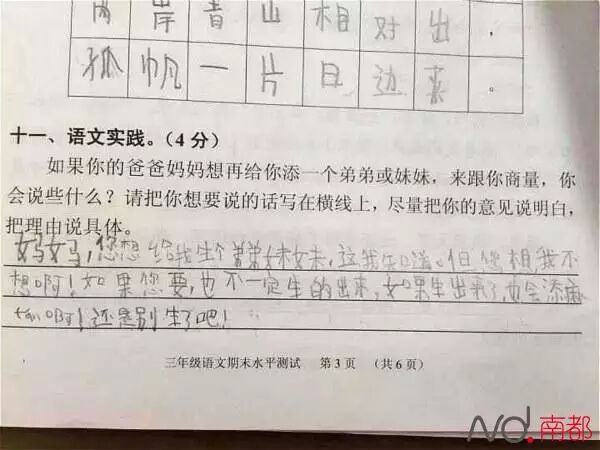 两岸青山相对出，
孤帆一片日边来。
十一、语文实践。(4分)
如果你的爸爸妈妈想再给你添一个弟弟或妹妹，来跟你商量，你
会说些什么？请把你想要说的话写在横线上，尽量把你的意见说明白，
把理由说具体。
妈妈，您想给我生个弟弟妹妹，这我知道。但您想我不
想啊！如果您要，也不一定生的出来，如果生出来了也会添麻
烦啊！还是别生了吧！
三年级语文期末水平测试 第3页 (共6页)
Nd.南都